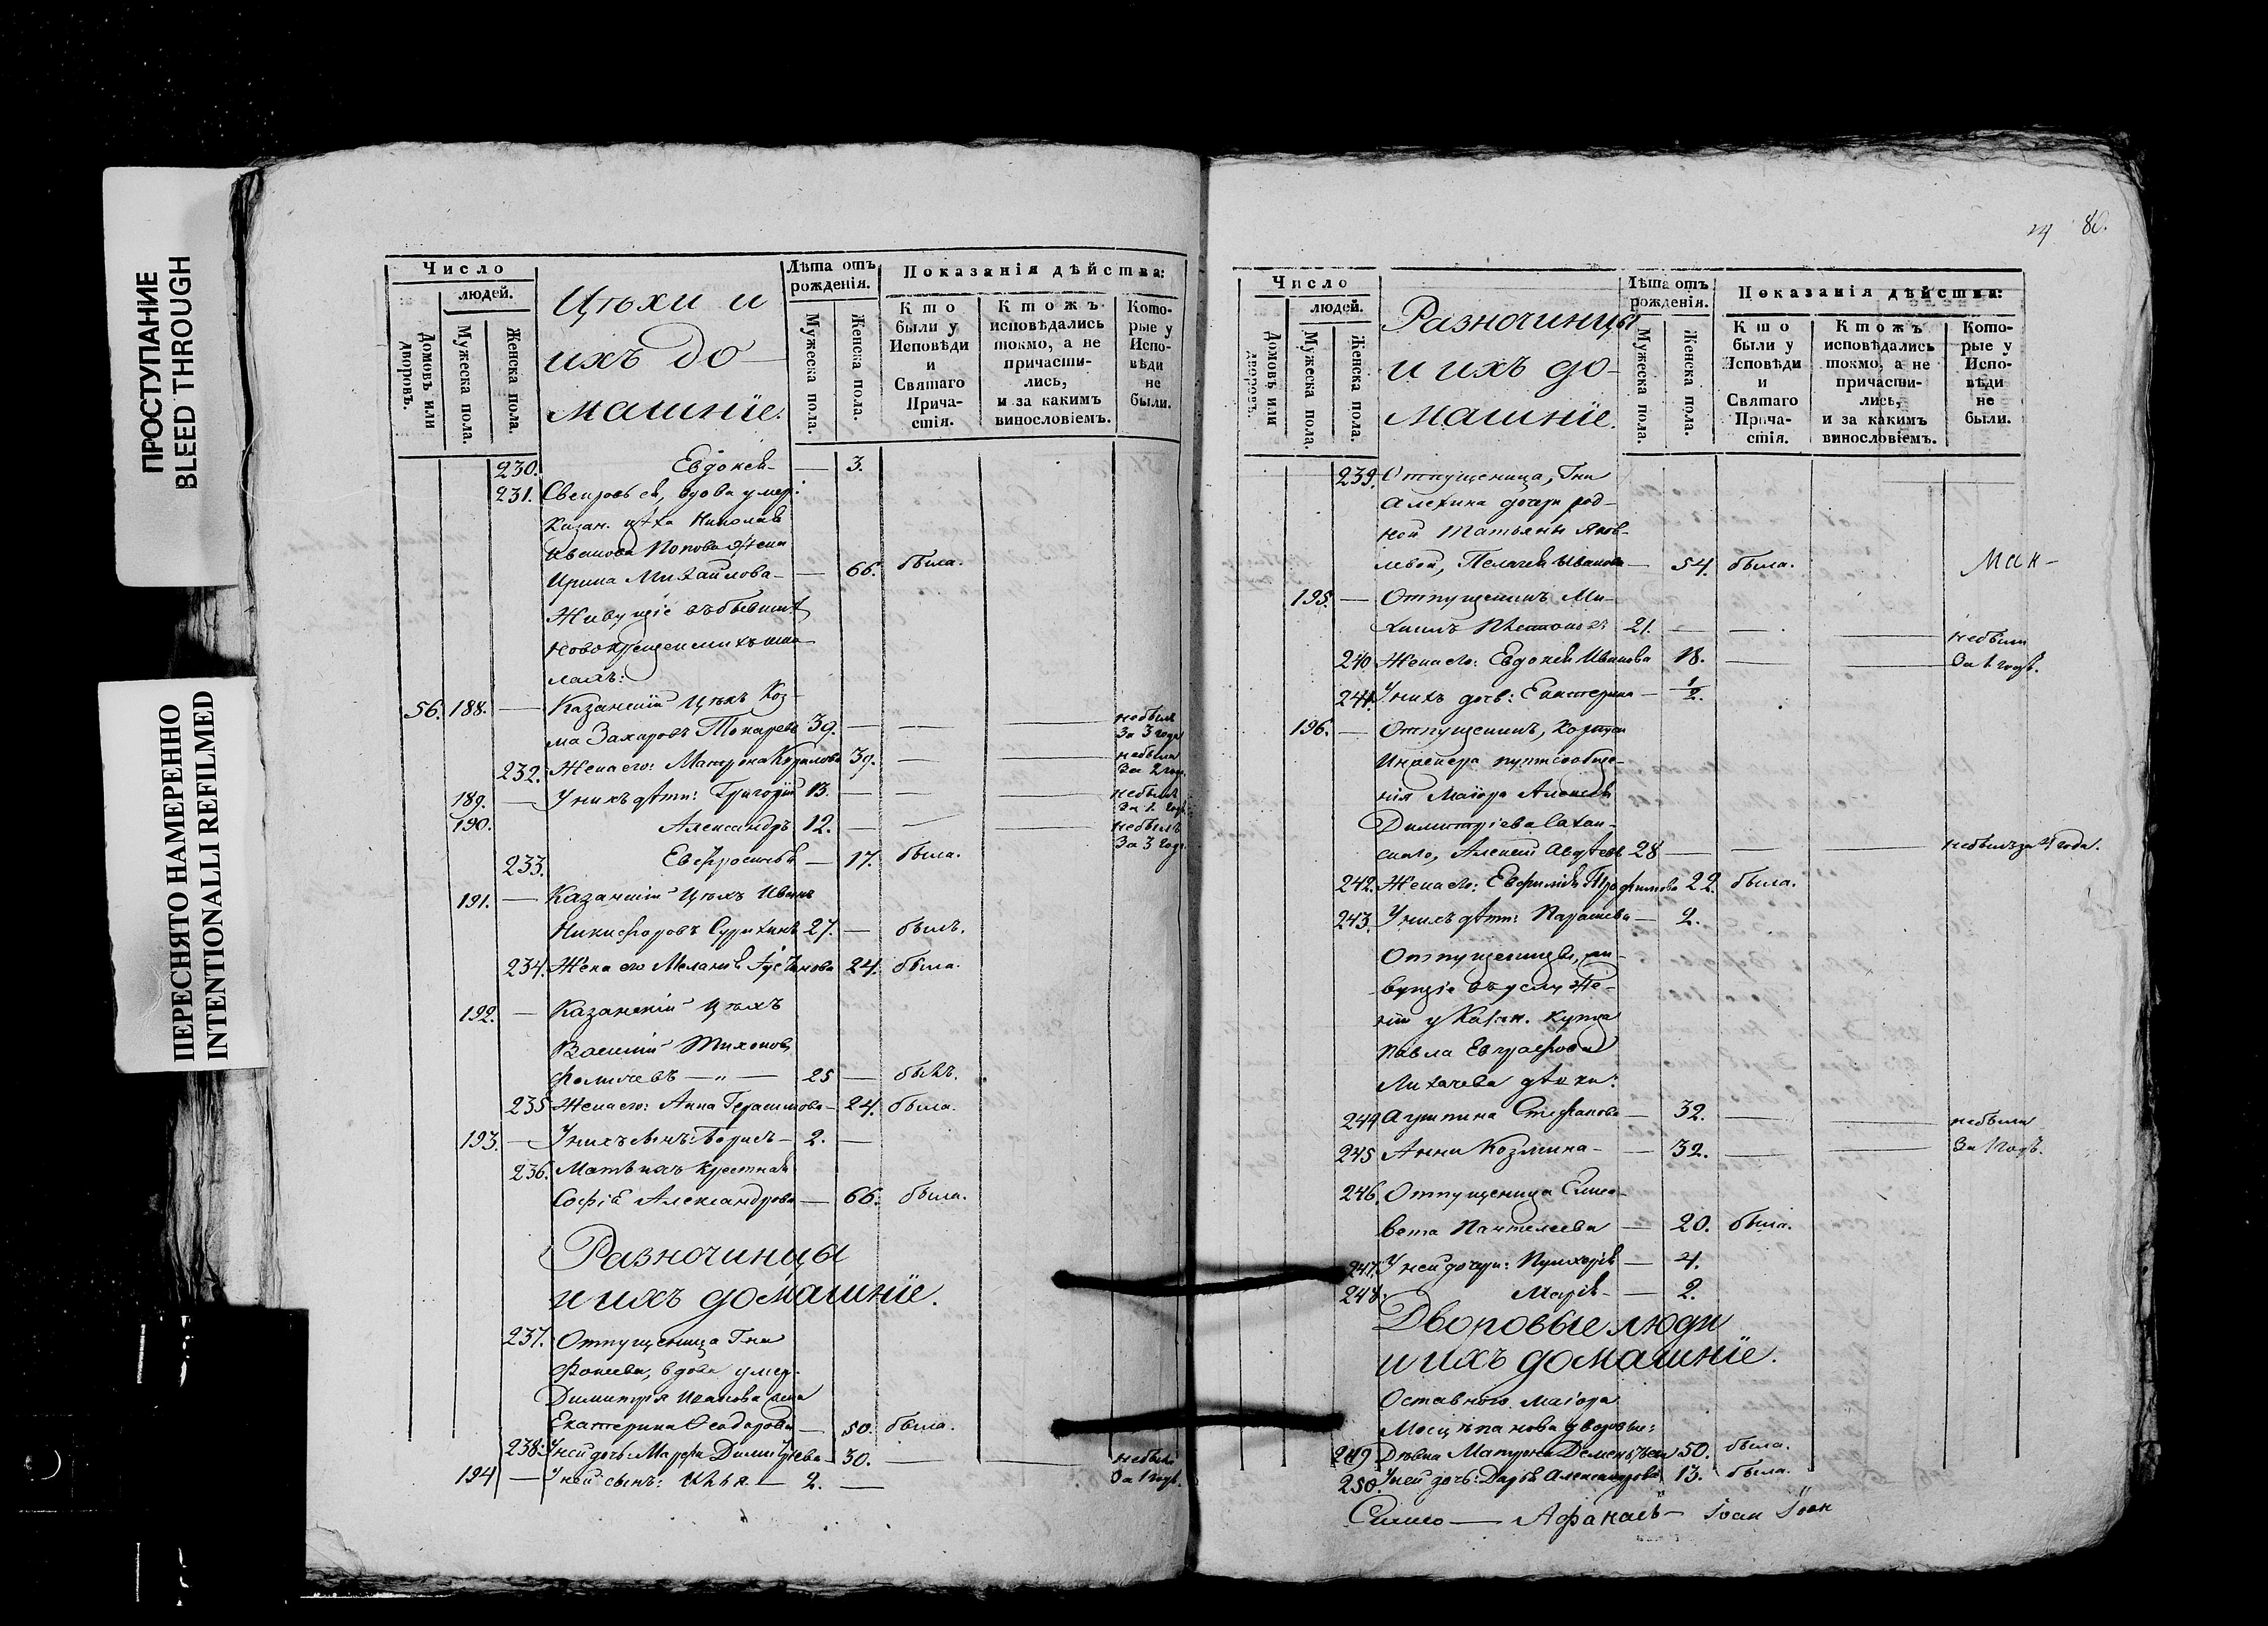 ПРОСТУПАНИЕ
BLEED THROUGH
ПЕРЕСНЯТО НАМЕРЕННО
INTENTIONALLI REFILMED
Число
людей.
Домовъ или дворовъ.
Мужеска пола.
Женска пола.
Цѣхи и
ихъ до-
машніе.
Лѣта отъ рожденія.
Мужеска пола.
Женска пола.
Показанія дѣйства:
Кто были у Исповѣди и Святаго Прича-стія.
Ктожъ исповѣдались токмо, а не причасти-лись, и за какимъ винословіемъ.
Кото-рые у Испо-вѣди не были.
230. Евдокея — 3.
231. Свекровь ея, вдова умер:
Казан. цѣха Николая
Иванова Попова жена
Ирина Михайлова — 66. была.
Живущіе въ бывшихъ
новокрещенскихъ шко-
лахъ:
56. 188. — Казанскій Цѣхъ Коз-
ма Захаровъ Токаревъ 39. — — — небылъ За 3 года
232. Жена его: Матрона Кирилова 39. — — небыла За 2 года.
189. — У нихъ дѣти: Григорій 13. — — небылъ За 1 годъ.
190. Александръ 12. — — — небылъ За 3 года.
233. Евфросинья — 17. была.
191. — Казанскій Цѣхъ Иванъ
Никифоровъ 27. — былъ.
234. Жена его Меланія 24. была.
192. — Казанскій Цѣхъ
Василій Тихоновъ
Фомичевъ — „ — 25 — былъ.
235 Жена его: Анна Герасимова — 24. была.
193. — У нихъ сынъ: Борисъ — 2. —
236. Мать ихъ крестная
Софія Александрова — 66. была.
Разночинцы
и ихъ домашніе.
237. Отпущеница Гжи
вдова умер.
Димитрія Иванова жена
Екатерина Ѳеодорова — 50. была.
238. У ней дочь: Марфа Димитріева — 30. — — небыла За 1 годъ.
194 — У ней сынъ: Илья — 2. —
80.
Число
людей.
Домовъ или дворовъ.
Мужеска пола.
Женска пола.
Разночинцы
и ихъ до-
машніе.
Лѣта отъ рожденія.
Мужеска пола.
Женска пола.
Показанія дѣйства:
Кто были у Исповѣди и Святаго Прича-стія.
Ктожъ исповѣдались токмо, а не причасти-лись, и за какимъ винословіемъ.
Кото-рые у Испо-вѣди не были.
239. Отпущеница, Гжи
Алехина дочери род-
ной Татьяны Яков-
левой, Пелагея Иванова — 54. была.
Мак-
195. — Отпущеникъ Ми-
хаилъ 21. — — — небыли
240 Жена его: Евдокея Иванова 18. — — За 1 годъ.
241. У нихъ дочь: Екатерина — 1/2.
196. — Отпущеникъ, Корпуса
Инженера путисообще-
нія Маіора Алексѣя
Димитріева
Алексѣй Авдѣевъ 28 — — — небылъ за 4 года.
242. Жена его: Евфимія Трофимова 22. была.
243. У нихъ дѣти: Парасева — 2.
Отпущеницы, жи-
вущіе въ услуже-
ніи у Казан. купца
Павла Евграфова
Лихачева дѣвки:
244 Агрипина Стефанова — 32. — — небыли
245 Анна Козмина — — 32. — — За 1 годъ.
246. Отпущеница Елиса-
вета Пантелеева — 20. была.
247. У ней дочери: — 4.
248. Марія — — 2.
Дворовые люди
и ихъ домашніе.
Оставного маіора
дворовые:
249 Дѣвка Матрона Дементьева 50. была.
250. У ней дочь: Дарья Александрова 13. была.
Афанасъ — Іоан